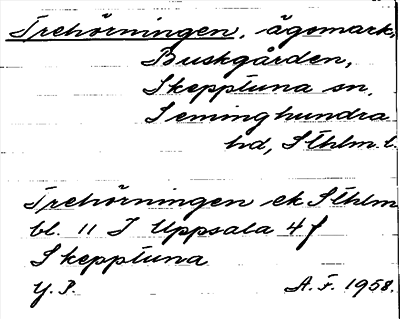 Trehörningen, ägomark,
Buskgården,
Skepptuna sn,
Seminghundra
hd, Sthlm. l.
Trehörningen ek Sthlm
bl. 11 I Uppsala 4 f
Skepptuna
Y. P. A. F. 1958.